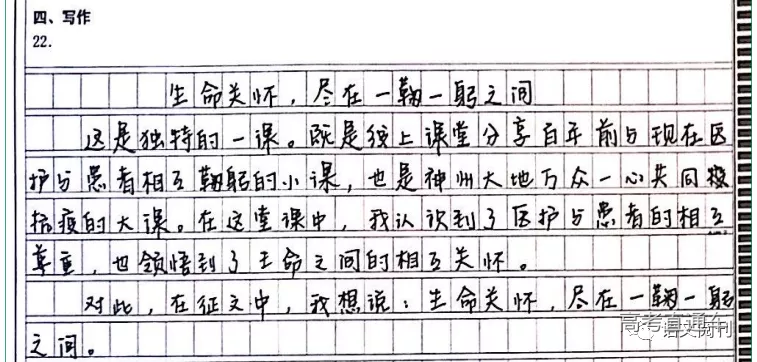 四、写作
22.
生命关怀，尽在一鞠一躬之间
这是独特的一课。既是线上课堂分享百年前与现在医
护与患者相互鞠躬的小课，也是神州大地万众一心共同
抗疫的大课。在这堂课中，我认识到了医护与患者的相互
尊重，也领悟到了王命之间的相互关怀。
对此，在征文中，我想说：生命关怀，尽在一鞠一躬
之间。
高考直通车
语文阅刊